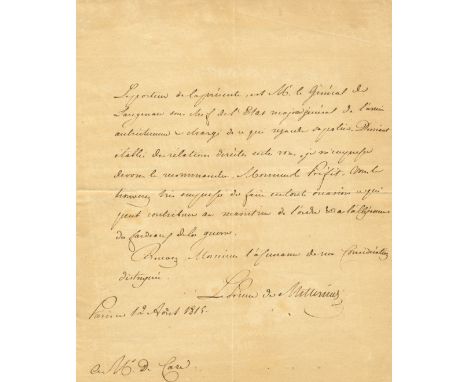 Le porteur de la présente, est Mr. le Général de
sous chef de l'Etat major général de l'armée
autrichienne chargé de ce qui regarde sa partie. Devant
établir des relations directes avec vous, je m'empresse
de vous le recommander Monsieur le Préfet. Vous le
trouverez très empressé de faire en toute occasion ce qui
peut contribuer au maintien de l'ordre & à l'allégeance
des fardeaux de la guerre.
Recevez Monsieur l'assurance de ma Considération
distinguée.
Le Prince de Metternich
Paris ce 12 Août 1815.
à Mr. De